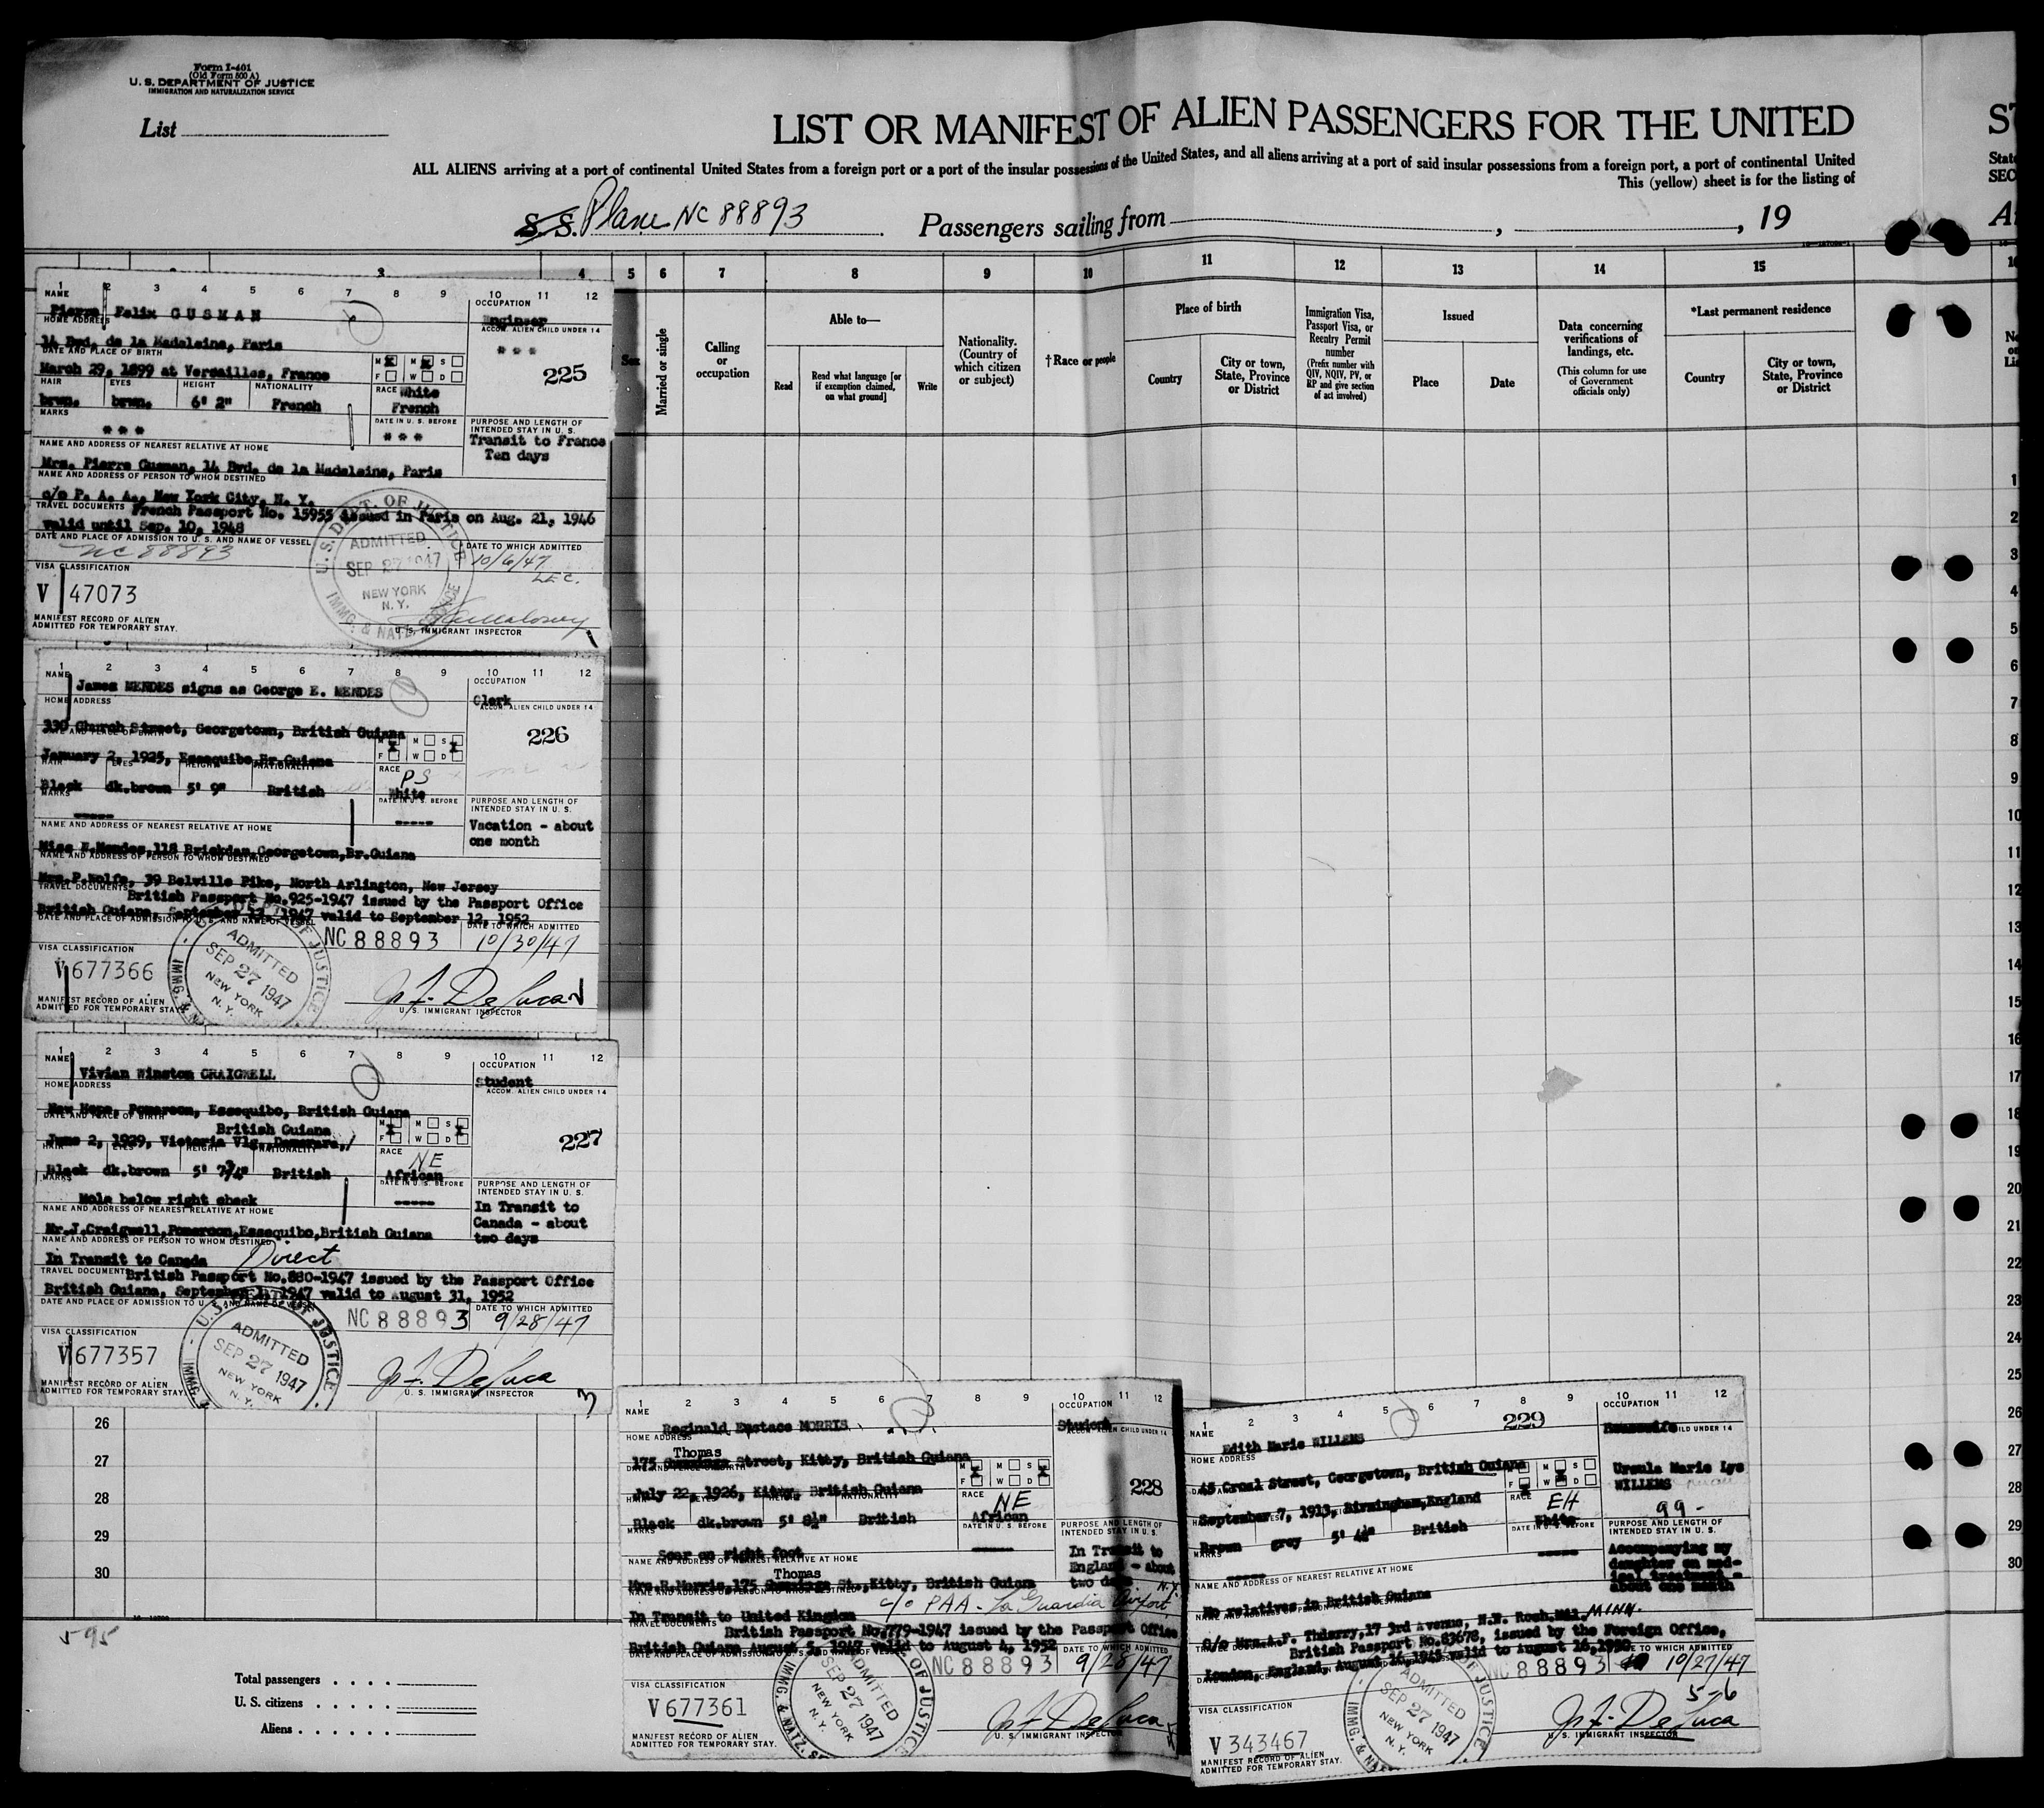 Form I-401
(Old Form 500 A)
U. S. DEPARTMENT OF JUSTICE
IMMIGRATION AND NATURALIZATION SERVICE
List
LIST OR MANIFEST OF ALIEN PASSENGERS FOR THE UNITED
ST
ALL ALIENS arriving at a port of continental United States from a foreign port or a port of the insular possessions of the United States, and all aliens arriving at a port of said insular possessions from a foreign port, a port of continental United
This (yellow) sheet is for the listing of
S. S. Plane NC 88893 Passengers sailing from , , 19
3 4 5 6 7 8 9 10 11 12 13 14 15
Sex
Married or single
Calling or occupation
Able to—
Read
Read what language [or if exemption claimed, on what ground]
Write
Nationality. (Country of which citizen or subject)
†Race or people
Place of birth
Country
City or town, State, Province or District
Immigration Visa, Passport Visa, or Reentry Permit number
(Prefix number with QIV, NQIV, PV, or RP and give section of act involved)
Issued
Place
Date
Data concerning verifications of landings, etc.
(This column for use of Government officials only)
*Last permanent residence
Country
City or town, State, Province or District
1 2 3 4 5 6 7 8 9 10 11 12
NAME
Pierre Felix GUSMAN
OCCUPATION
Engineer
HOME ADDRESS
14 Bvd. de la Madeleine, Paris
ACCOM. ALIEN CHILD UNDER 14
* * *
DATE AND PLACE OF BIRTH
March 29, 1899 at Versailles, France
M M S
F W D
225
HAIR EYES HEIGHT NATIONALITY
brwn. brwn. 6' 2" French
RACE White
French
MARKS
* * *
DATE IN U. S. BEFORE
* * *
PURPOSE AND LENGTH OF INTENDED STAY IN U. S.
Transit to France
Ten days
NAME AND ADDRESS OF NEAREST RELATIVE AT HOME
Mrs. Pierre Gusman, 14 Bvd. de la Madeleine, Paris
NAME AND ADDRESS OF PERSON TO WHOM DESTINED
c/o P. A. A., New York City, N. Y.
TRAVEL DOCUMENTS French Passport No. 15955 issued in Paris on Aug. 21, 1946
valid until Sep. 10, 1948
DATE AND PLACE OF ADMISSION TO U. S. AND NAME OF VESSEL
NC 88893
DATE TO WHICH ADMITTED
10/6/47
U. S. DEPT. OF JUSTICE
ADMITTED
SEP 27 1947
NEW YORK
N. Y.
IMMG. & NATZ.
VISA CLASSIFICATION
V 47073
MANIFEST RECORD OF ALIEN
ADMITTED FOR TEMPORARY STAY.
U. S. IMMIGRANT INSPECTOR
1 2 3 4 5 6 7 8 9 10 11 12
NAME
James MENDES signs as George E. MENDES
OCCUPATION
Clerk
HOME ADDRESS
330 Church Street, Georgetown, British Guiana
ACCOM. ALIEN CHILD UNDER 14
226
DATE AND PLACE OF BIRTH
January 2, 1925, Essequibo, Br.Guiana
M M S
F W D
HAIR EYES HEIGHT NATIONALITY
Black dk.brown 5' 9" British
RACE
PS
White
MARKS
-----
DATE IN U. S. BEFORE
-----
PURPOSE AND LENGTH OF INTENDED STAY IN U. S.
Vacation - about
one month
NAME AND ADDRESS OF NEAREST RELATIVE AT HOME
Miss E.Mendes, 118 Brickdam, Georgetown, Br.Guiana
NAME AND ADDRESS OF PERSON TO WHOM DESTINED
Mrs.P.Wolfe, 39 Belville Pike, North Arlington, New Jersey
TRAVEL DOCUMENTS
British Passport No.925-1947 issued by the Passport Office
British Guiana, September 13, 1947 valid to September 12, 1952
DATE AND PLACE OF ADMISSION TO U. S. AND NAME OF VESSEL
NC 88893
DATE TO WHICH ADMITTED
10/30/47
VISA CLASSIFICATION
V 677366
ADMITTED
SEP 27 1947
NEW YORK
N. Y.
MANIFEST RECORD OF ALIEN
ADMITTED FOR TEMPORARY STAY.
J. F. De Luca
U. S. IMMIGRANT INSPECTOR
1 2 3 4 5 6 7 8 9 10 11 12
NAME
Vivian Winston CRAIGWELL
OCCUPATION
Student
HOME ADDRESS
New Hope, Pomeroon, Essequibo, British Guiana
ACCOM. ALIEN CHILD UNDER 14
227
DATE AND PLACE OF BIRTH
British Guiana
June 2, 1929, Victoria Vlg., Demerara,/
M M S
F W D
HAIR EYES HEIGHT NATIONALITY
Black dk.brown 5' 7¾" British
RACE
NE
African
MARKS
Mole below right cheek
DATE IN U. S. BEFORE
-----
PURPOSE AND LENGTH OF INTENDED STAY IN U. S.
In Transit to
Canada - about
two days
NAME AND ADDRESS OF NEAREST RELATIVE AT HOME
Mr.J.Craigwell,Pomeroon,Essequibo,British Guiana
NAME AND ADDRESS OF PERSON TO WHOM DESTINED
In Transit to Canada Direct
TRAVEL DOCUMENTS British Passport No.880-1947 issued by the Passport Office
British Guiana, September 1, 1947 valid to August 31, 1952
DATE AND PLACE OF ADMISSION TO U. S. AND NAME OF VESSEL
NC 88893
DATE TO WHICH ADMITTED
9/28/47
VISA CLASSIFICATION
V 677357
ADMITTED
SEP 27 1947
NEW YORK
N. Y.
MANIFEST RECORD OF ALIEN
ADMITTED FOR TEMPORARY STAY.
J. F. De Luca
U. S. IMMIGRANT INSPECTOR
3
1 2 3 4 5 6 7 8 9 10 11 12
NAME
Reginald Eustace MORRIS
OCCUPATION
Student
HOME ADDRESS
Thomas
175 Street, Kitty, British Guiana
ACCOM. ALIEN CHILD UNDER 14
228
July 22, 1926, Kitty, British Guiana
M M S
F W D
Black dk.brown 5' 8½" British
RACE
NE
African
MARKS
Scar on right foot
DATE IN U. S. BEFORE
-----
PURPOSE AND LENGTH OF INTENDED STAY IN U. S.
In Transit to
England - about
two days
NAME AND ADDRESS OF NEAREST RELATIVE AT HOME
Thomas
Mrs.R.Morris,175 St.,Kitty, British Guiana
In Transit to United Kingdom c/o PAA - La Guardia Airport, N.Y.
TRAVEL DOCUMENTS
British Passport No.779-1947 issued by the Passport Office
British Guiana August 5, 1947 valid to August 4, 1952
NC 88893
DATE TO WHICH ADMITTED
9/28/47
VISA CLASSIFICATION
V 677361
ADMITTED
SEP 27 1947
NEW YORK
N. Y.
MANIFEST RECORD OF ALIEN
ADMITTED FOR TEMPORARY STAY.
J. F. De Luca
U. S. IMMIGRANT INSPECTOR
1 2 3 4 5 6 7 8 9 10 11 12
229
NAME
Edith Marie WILLEMS
OCCUPATION
Housewife
HOME ADDRESS
45 Croal Street, Georgetown, British Guiana
Ursula Marie Lys
WILLEMS
99-
September 7, 1913, Birmingham, England
M M S
F W D
Brown grey 5' 4½" British
RACE
EH
White
MARKS
-----
DATE IN U. S. BEFORE
-----
PURPOSE AND LENGTH OF INTENDED STAY IN U. S.
Accompanying my
daughter on med-
ical treatment -
about one month
NAME AND ADDRESS OF NEAREST RELATIVE AT HOME
No relatives in British Guiana
C/o Mrs.A.F. Thierry,17 3rd Avenue, N.W. Roch. MINN.
British Passport No.83678, issued by the Foreign Office,
London, England, August 16,1945 valid to August 16,1950
NC 88893
DATE TO WHICH ADMITTED
10/27/47
5-6
VISA CLASSIFICATION
V 343467
ADMITTED
SEP 27 1947
NEW YORK
N. Y.
MANIFEST RECORD OF ALIEN
ADMITTED FOR TEMPORARY STAY.
J. F. De Luca
U. S. IMMIGRANT INSPECTOR
1
2
3
4
5
6
7
8
9
10
11
12
13
14
15
16
17
18
19
20
21
22
23
24
25
26 26
27 27
28 28
29 29
30 30
595
Total passengers . . . .
U. S. citizens . . . . .
Aliens . . . . . .